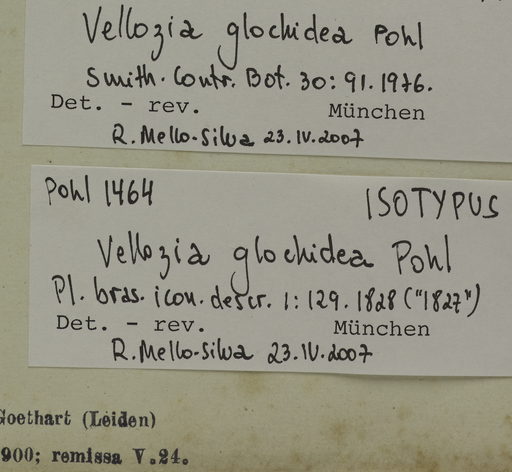 Vellozia glochidea Pohl
Smith. Contr. Bot. 30: 91. 1976.
Det. - rev. München
R. Mello-Silva 23.IV.2007
Pohl 1464 ISOTYPUS
Vellozia glochidea Pohl
Pl. bras. icon. descr. 1: 129. 1828 ("1827")
Det. - rev. München
R. Mello-Silva 23.IV.2007
Goethart (Leiden)
900; remissa V.24.